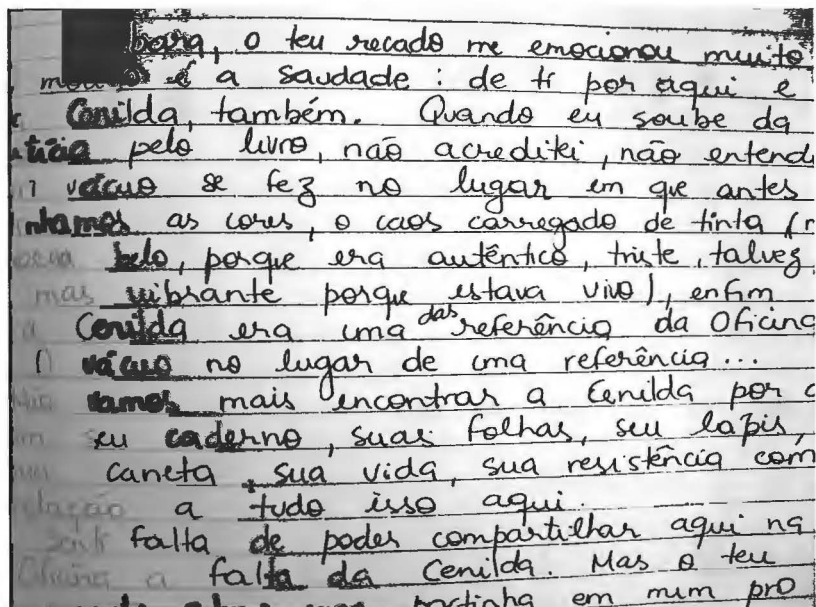 bara, o teu recado me emocionou muito
é a saudade : de ti por aqui e
Cenilda, também. Quando eu soube da
tícia pelo livro, não acreditei, não entendi
vácuo se fez no lugar em que antes
nhamos as cores, o caos carregado de tinta (
belo, porque era autêntico, triste, talvez,
mas vibrante porque estava vivo), enfim
a Cenilda era uma das referência da Oficina
vácuo no lugar de uma referência...
vamos mais encontrar a Cenilda por
seu caderno, suas folhas, seu lápis,
caneta, sua vida, sua resistência com
relação a tudo isso aqui.
falta de poder compartilhar aqui na
Oficina a falta da Cenilda. Mas o teu
portinha em mim pro